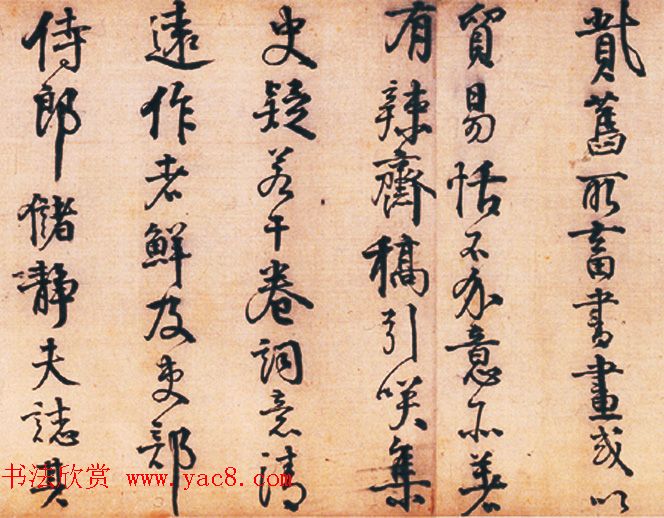 舊所畜書畫或以
貿易恬不介意所著
有辣齋稿引笑集
史疑若干卷詞意清
遠作者鮮及吏部
侍郎儲靜夫誌其
书法欣赏 www.yac8.com